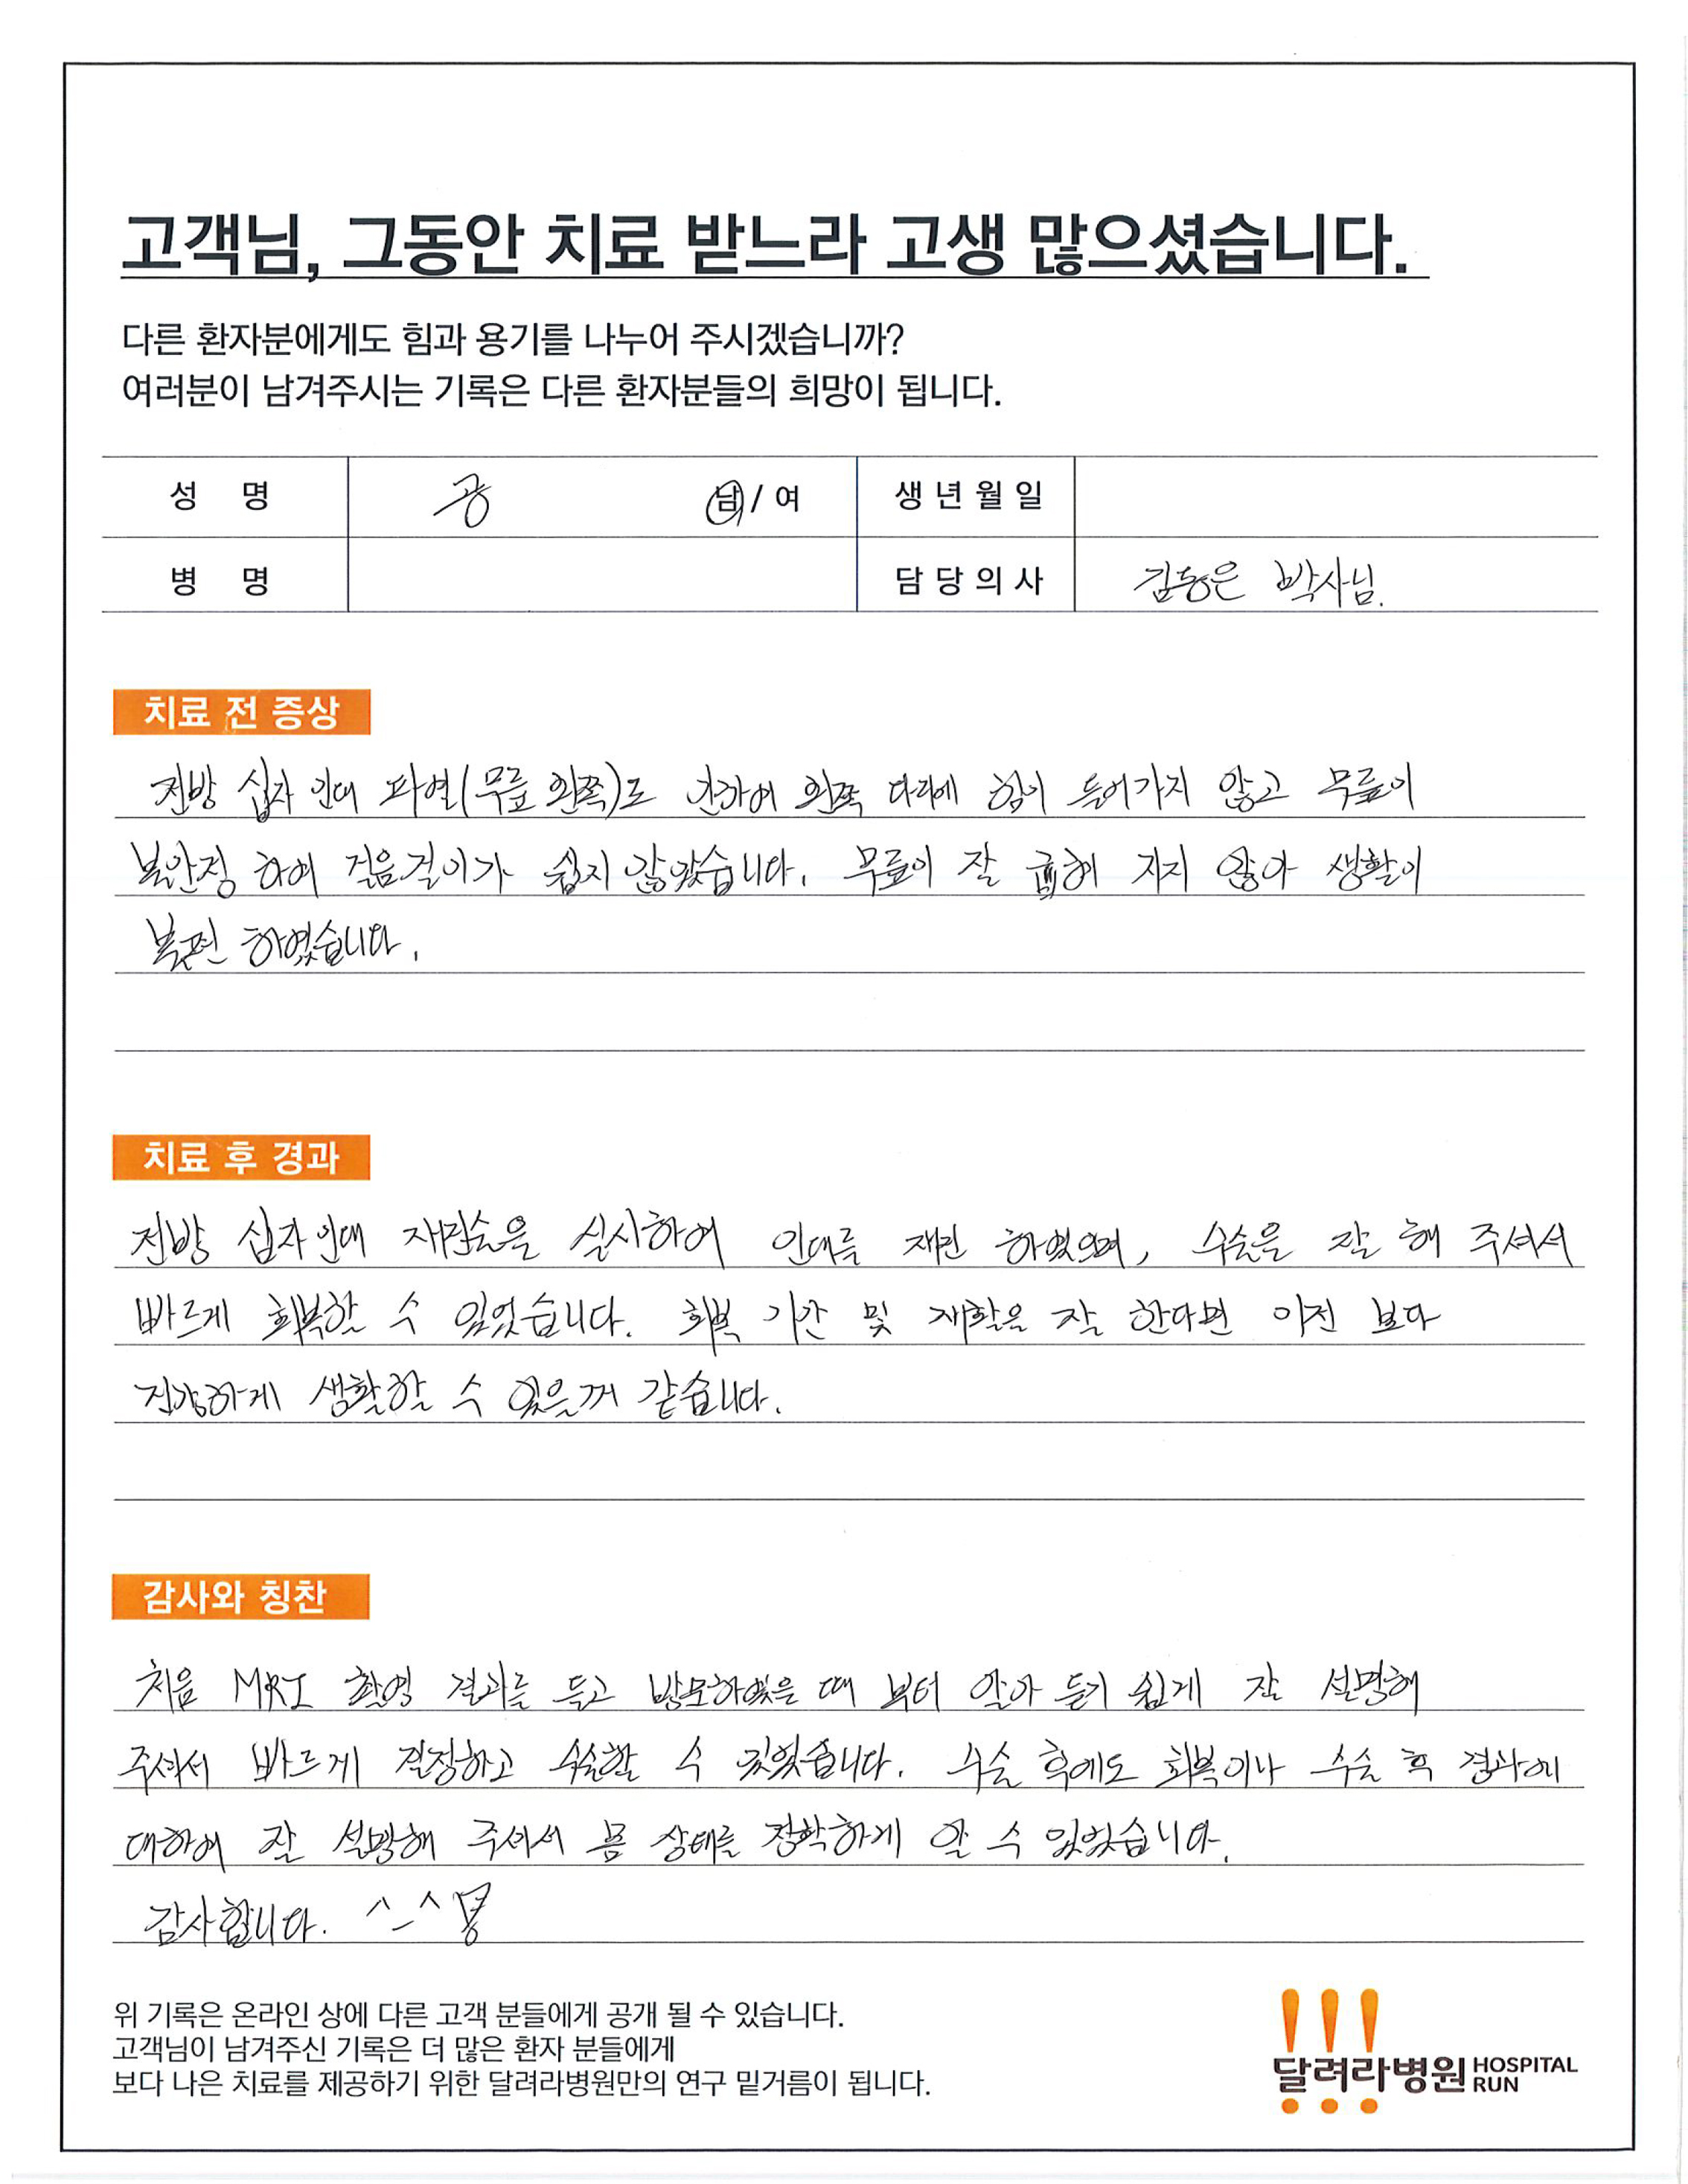 고객님, 그동안 치료 받느라 고생 많으셨습니다.
다른 환자분에게도 힘과 용기를 나누어 주시겠습니까?
여러분이 남겨주시는 기록은 다른 환자분들의 희망이 됩니다.
성 명 공 남 / 여 생 년 월 일
병 명 담 당 의 사 김동은 박사님.
치료 전 증상
전방 십자 인대 파열(무릎 왼쪽)로 인하여 왼쪽 다리에 힘이 들어가지 않고 무릎이
불안정 하여 걸음걸이가 쉽지 않았습니다. 무릎이 잘 굽혀 지지 않아 생활이
불편 하였습니다.
치료 후 경과
전방 십자인대 재건술을 실시하여 인대를 재건 하였으며, 수술을 잘 해 주셔서
빠르게 회복할 수 있었습니다. 회복 기간 및 재활을 잘 한다면 이전 보다
건강하게 생활할 수 있을꺼 같습니다.
감사와 칭찬
처음 MRI 촬영 결과를 듣고 방문하였을 때 부터 알아 듣기 쉽게 잘 설명해
주셔서 빠르게 결정하고 수술할 수 있었습니다. 수술 후에도 회복이나 수술 후 경과에
대하여 잘 설명해 주셔서 몸 상태를 정확하게 알 수 있었습니다.
감사합니다. ^_^
위 기록은 온라인 상에 다른 고객 분들에게 공개 될 수 있습니다.
고객님이 남겨주신 기록은 더 많은 환자 분들에게
보다 나은 치료를 제공하기 위한 달려라병원만의 연구 밑거름이 됩니다.
달려라병원 HOSPITAL RUN